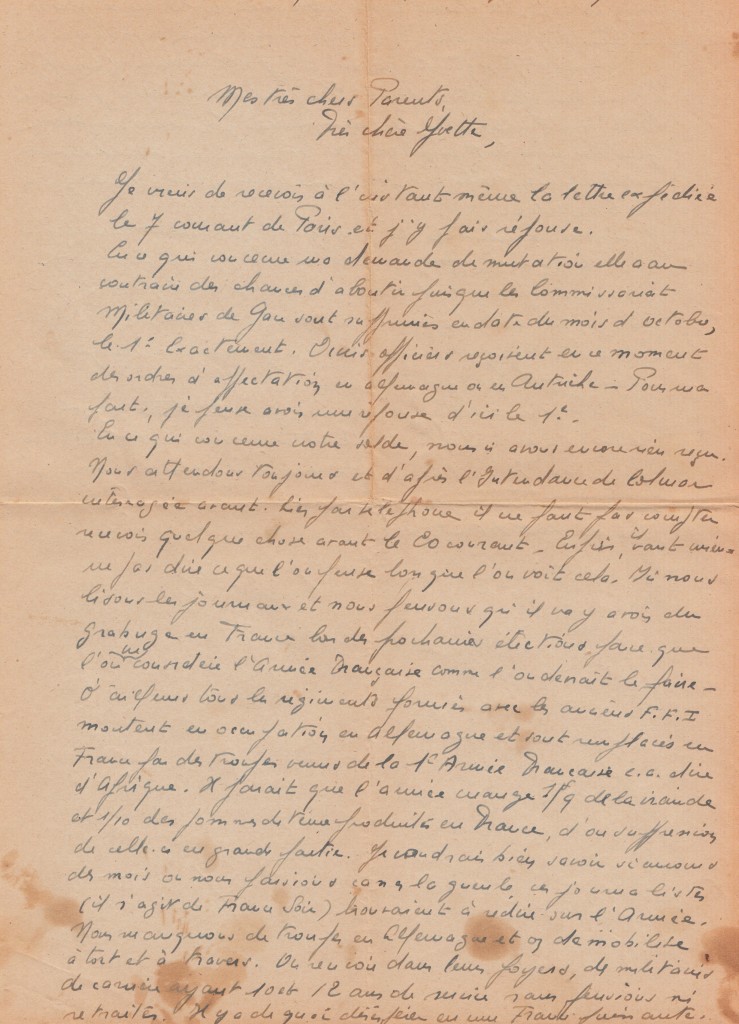 Mes très chers Parents,
Très chère Yvette,
Je viens de recevoir à l'instant même la lettre expédiée
le 7 courant de Paris et j'y fais réponse.
En ce qui concerne ma demande de mutation elle a au
contraire des chances d'aboutir puisque les Commissariat
Militaires de Gare sont supprimés en date du mois d'octobre,
le 1er Exactement. Divers officiers reçoivent en ce moment
des ordres d'affectation en Allemagne ou en Autriche - Pour ma
part, je pense avoir une réponse d'ici le 1er.
En ce qui concerne notre solde, nous n'avons encore rien reçu.
Nous attendons toujours et d'après l'Intendance de Colmar
interrogée avant-hier par téléphone il ne faut pas compter
recevoir quelque chose avant le 20 courant - Enfin, il vaut mieux
ne pas dire ce que l'on pense lorsque l'on voit cela. Ici nous
lisons les journaux et nous pensons qu'il va y avoir du
grabuge en France lors des prochaines élections, parce que
l'on considère l'Armée Française comme l'on devrait le faire -
D'ailleurs tous les régiments formés avec les anciens F.F.I
montent en occupation en Allemagne et sont remplacés en
France par des troupes venues de la 1e Armée Française c.a. dire
d'Afrique. Il parait que l'armée mange 1/9 de la viande
et 1/10 des pommes de terre produites en France, d'où suppression
de celle-ci en grande partie. Je voudrais bien savoir si au cours
des mois où nous faisions la gueule, ces journalistes
(il s'agit de France Soir) trouvaient à redire sur l'Armée.
Nous manquons de troupes en Allemagne et on démobilise
à tort et à travers. On renvoie dans leurs foyers, des militaires
de carrière ayant 10 et 12 ans de service sans pensions ni
retraites. Il y a de quoi désespérer en une France puissante.